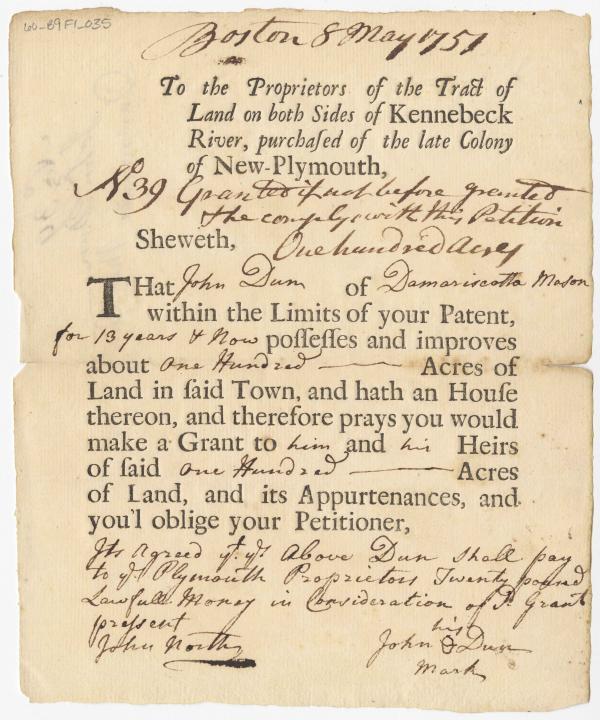 60-89F1-035
Boston 8 May 1751
To the Proprietors of the Tract of
Land on both Sides of Kennebeck
River, purchaſed of the late Colony
of New-Plymouth,
No 39 Granted if not before granted
& he comply with this Petition
Sheweth, One hundred Acres
THat John Dun of Damariscotta Mason
within the Limits of your Patent,
for 13 years & Now poſſeſſes and improves
about one Hundred Acres of
Land in ſaid Town, and hath an Houſe
thereon, and therefore prays you would
make a Grant to him and his Heirs
of ſaid one Hundred Acres
of Land, and its Appurtenances, and
you'l oblige your Petitioner,
Its Agreed yt. ye Above Dun shall pay
to ye Plymouth Proprietors Twenty pound
Lawfull Money in Consideration of sd. Grant
present
John North his
John Dun
Mark